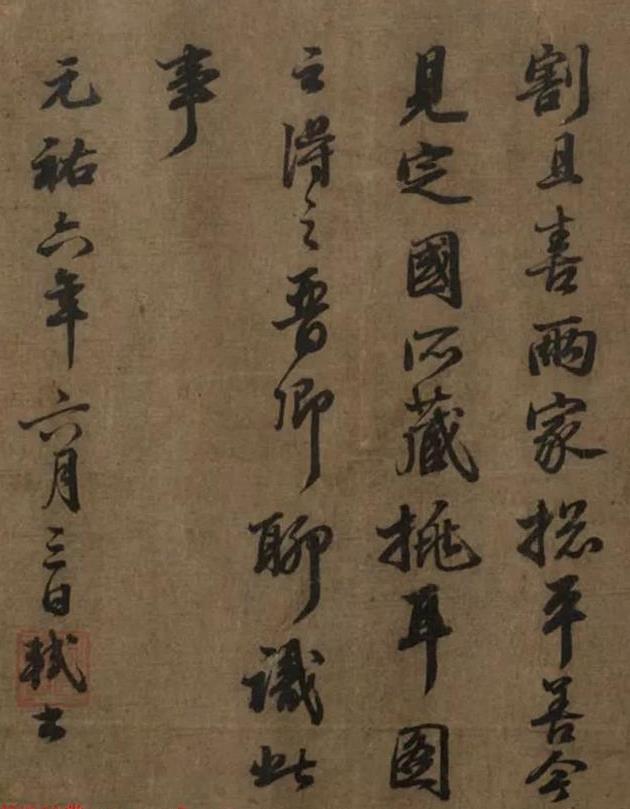 割且喜兩家揔平善今
見定國所藏挑耳圖
云得之晉卿聊識此
事
元祐六年六月三日軾書